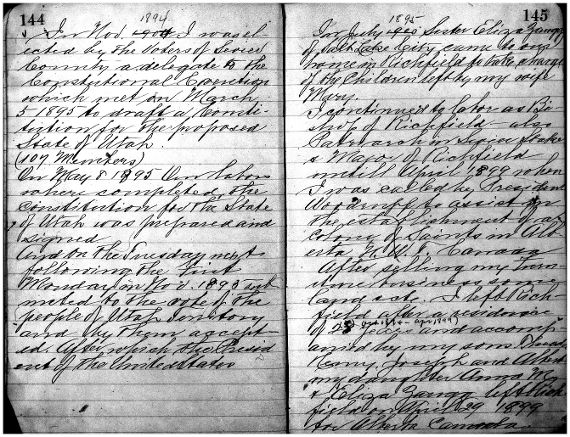 144
1894
In Nov. 1904 I was el
ected by the Voters of Sevier
County a delegate to the
Constitutional Convention
which met on March
5 1895 to draft a Consti
tution for the proposed
State of Utah
(107 Members)
On May 8 1895 Our labors
where completed, the
constitution for the State
of Utah was prepared and
signed
And on the Tuesday next
following the first
Monday in Nov. 1895 sub
mitted to the vote of the
people of Utah Territory
and by them accept-
ed. After which the Presid
ent of the United States
145
1895
In July Sister Eliza Zaugg
of Salt Lake City came to our
home in Richfield to take charge
of the Children left by my wife
Mary.
I continued to labor as Bi
shop of Richfield also
Patriarch in Sevier Stake
& Major of Richfield
untill April 1899 when
I was called by President
to assist in
the establishment of a
Colony of Saints in Alb
erta N. W. T. Canada
After selling my furn
iture business some
land etc. I left Rich
field after a residence
of 25 and accomp
anied by my sons
Henry, Joseph and Albert
my daughter Anna M.
& Eliza Zaugg left Rich
field on April 29 1899
for Alberta Canada.